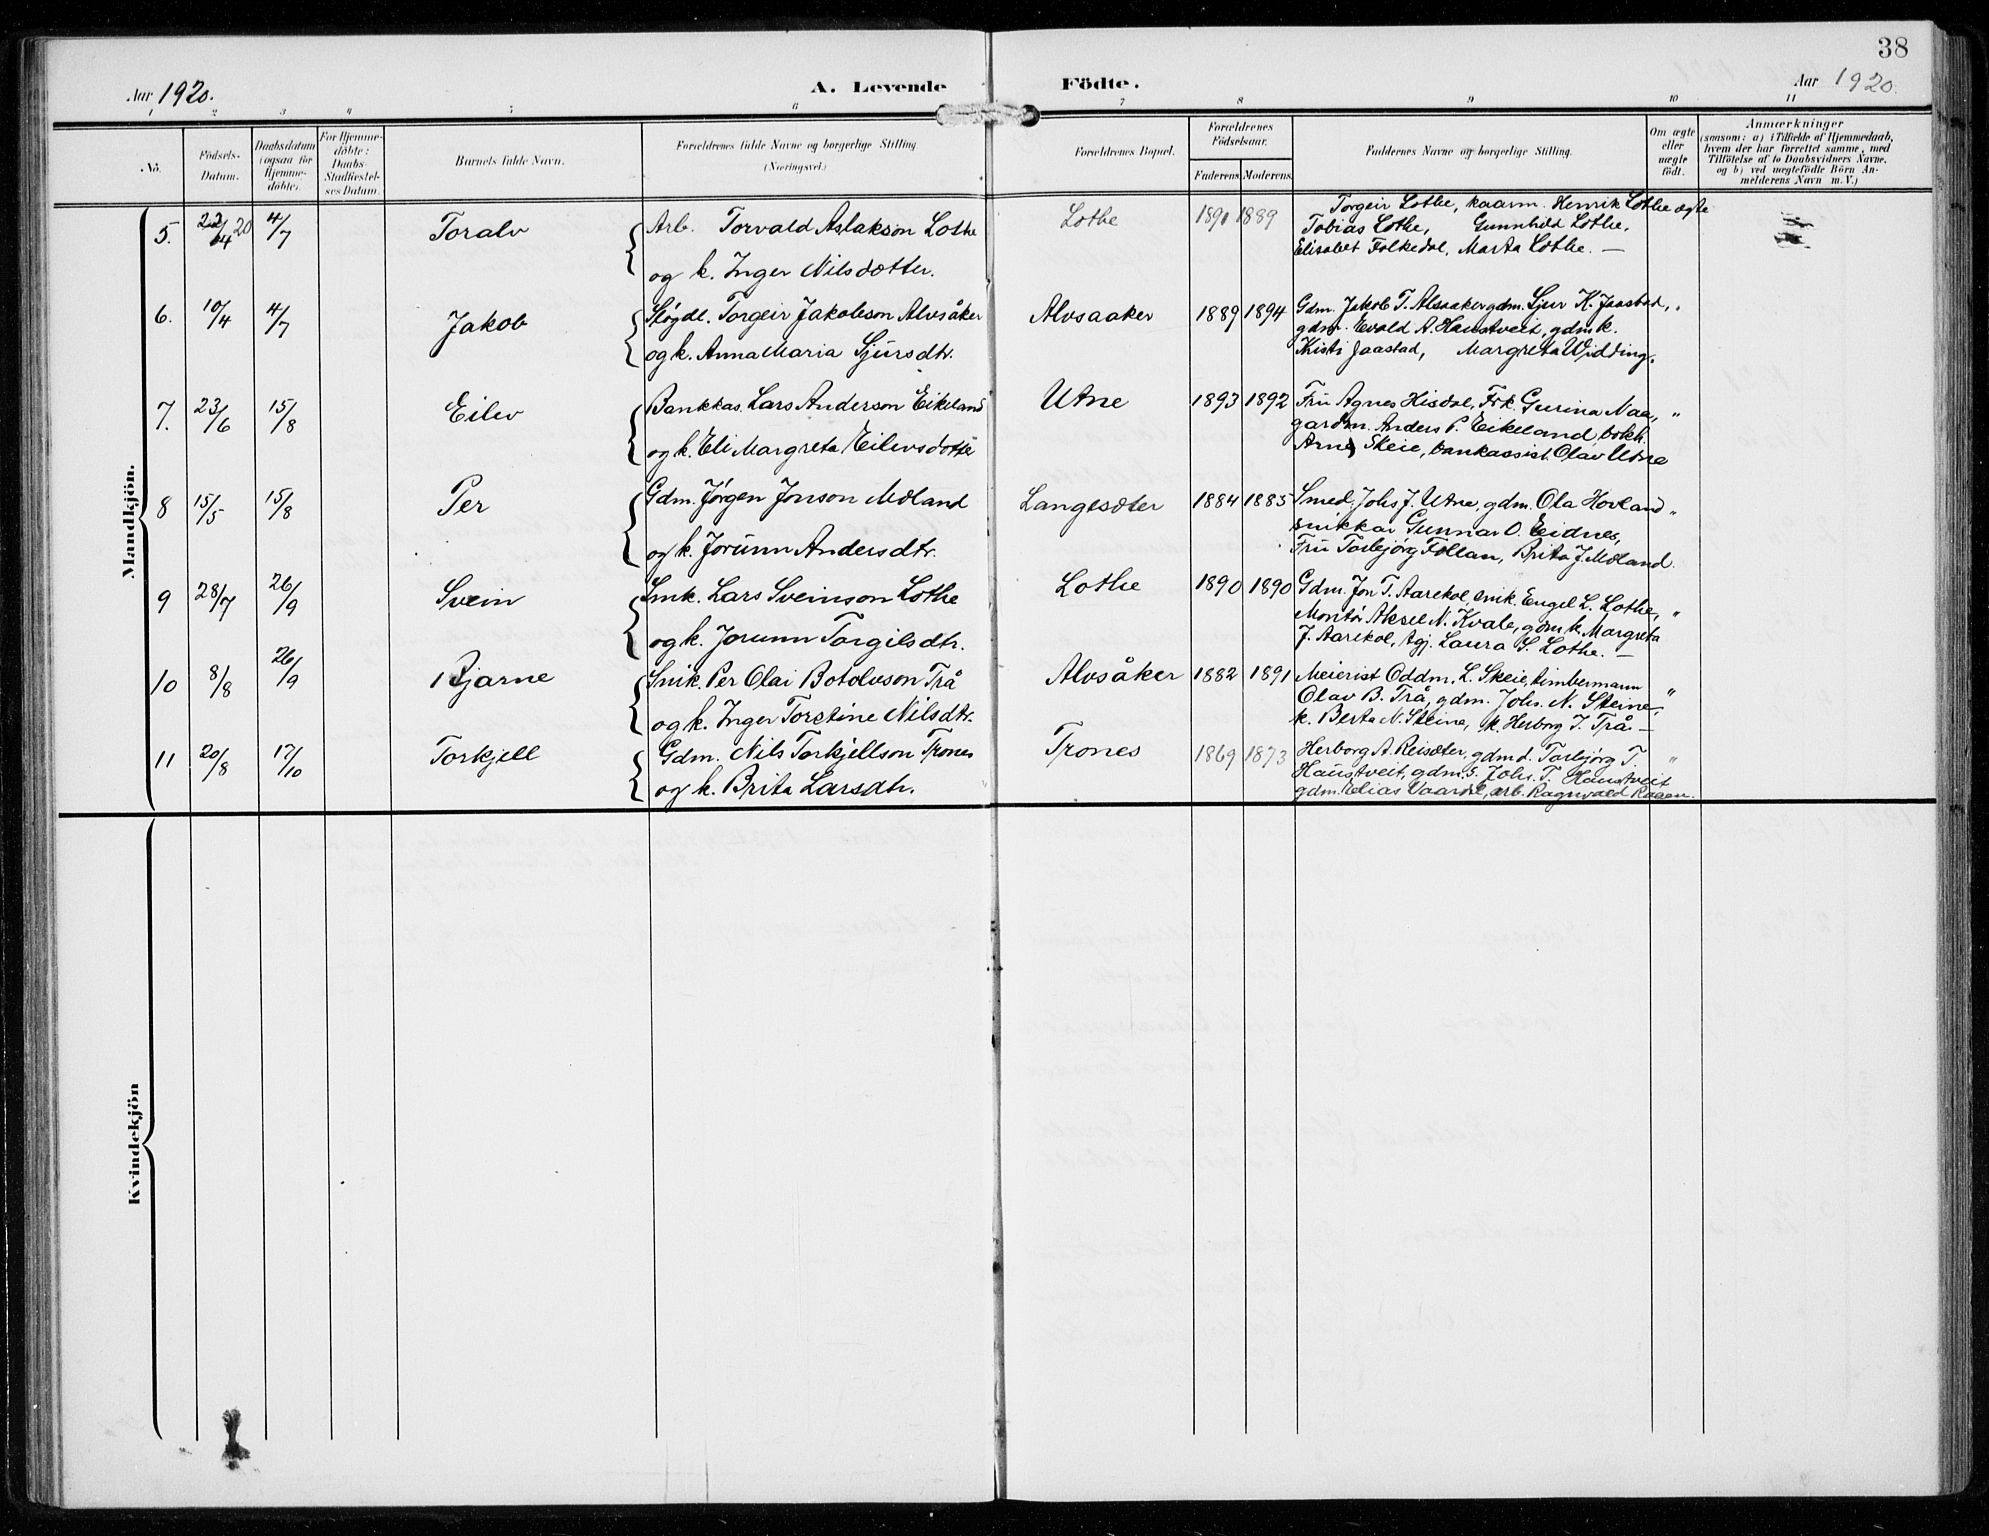 38
Aar 1920.
A. Levende Födte.
Aar 1920.
1 2 3 4 5 6 7 8 9 10 11
No.
Födsels-Datum.
Daabsdatum (ogsaa for Hjemme-döbte).
For Hjemme-döbte: Daabs-Stadfæstel-ses Datum.
Barnets fulde Navn.
Forældrenes fulde Navne og borgerlige Stilling (Næringsvei.)
Forældrenes Bopæl.
Forældrenes Födselsaar.
Faderens. Moderens.
Faddernes Navne og borgerlige Stilling.
Om ægte eller uægte födt.
Anmærkninger
(saasom: a) i Tilfælde af Hjemmedaab,
hvem der har forrettet samme, med
Tilföielse af to Daabsvidners Navne,
og b) ved uægtefödte Börn An-
melderens Navn m. V.)
Mandkjön.
5. 22/4 20 4/7 Toralv Arb. Torvald Aslakson Lothe Lothe 1891 1889 Torgeir Lothe, kaarm. Henrik Lothe ægte
Tobias Lothe, Gunnhild Lothe,
og k. Inger Nilsdotter. Elisabet Folkedal, Marta Lothe. —
6. 10/4 4/7 Jakob Sløgdl. Torgeir Jakobson Alvsåker Alvsaaker 1889 1894 Gdm. Jakob T. Alsaaker gdm. Sjur K. Jaastad, "
gdm. Evald A. Haustveit, gdm k.
og k. Anna Maria Sjursdtr. Kristi Jaastad, Margreta Widding.
7. 23/6 15/8 Eilev Bankkas. Lars Anderson Eikeland Utne 1893 1892 Fru Agnes Hisdal, Frk. Gurina Naa, "
gardm. Anders P. Eikeland, bokh.
og k. Eli Margreta Eilevsdotter Arne Skeie, bankassist. Olav Utne
8 15/5 15/8 Per Gdm. Jørgen Jonson Mæland Langesæter 1884 1885 Smed Johs J. Utne, gdm. Ola Hovland "
snikkar Gunnar O. Eidnes,
og k. Jorunn Andersdtr. Fru Torbjørg Follan, Brita J. Mæland.
9 28/7 26/9 Svein Snik. Lars Sveinson Lothe Lothe 1890 1890 Gdm. Jon T. Aarekol, snik. Engel L. Lothe, "
Montør Aksel N. Kvale, gdm k. Margreta
og k. Jorunn Torgilsdtr. J. Aarekol, Ugj. Laura S. Lothe. —
10 8/8 26/9 Bjarne Snik. Per Olai Botolvson Trå Alvsåker 1882 1891 Meierist Oddm. L. Skeie, timbermann
Olav B. Trå, gdm. Johs. N. Steine, "
og k. Inger Torstine Nilsdtr. k. Berta N. Steine, k Herborg J. Trå. —
11 20/8 17/10 Torkjell Gdm. Nils Torkjellson Trones Trones 1869 1873 Herborg A. Reisæter, gdm d. Torbjørg T. "
Haustveit, gdm. s. Johs. T. Haustveit
og k. Brita Larsdtr. gdm. Elias Vaardal, arb. Ragnvald Raaen.
Kvindekjön